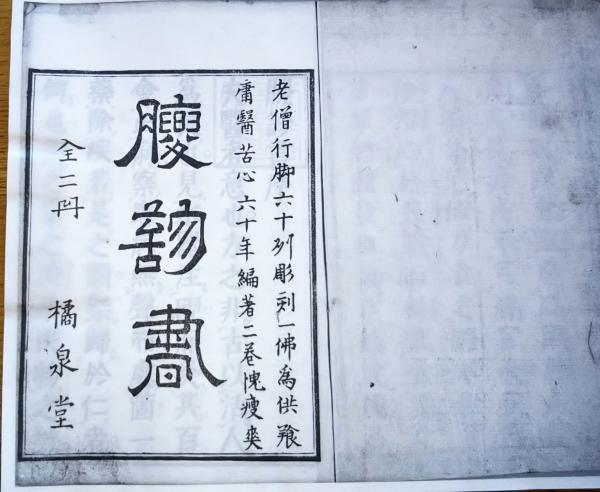 老僧行脚六十列彫刻一佛為供飱
庸醫苦心六十年編著二卷愧瘦
腹診書
全二冊
橘泉堂